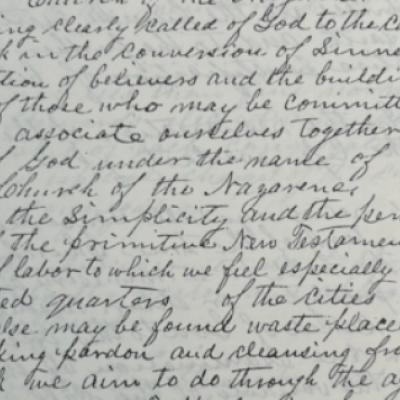 Church of the Nazarene
ing clearly called of God to the c
k in the conversion of Sinne
tion of believers and the buildi
of those who may be committ
associate ourselves together
f God under the name of
Church of the Nazarene,
the simplicity and the pow
f the primitive New Testamen
f labor to which we feel especially
ted quarters of the cities
else may be found waste place
king pardon and cleansing fro
k we aim to do through the a